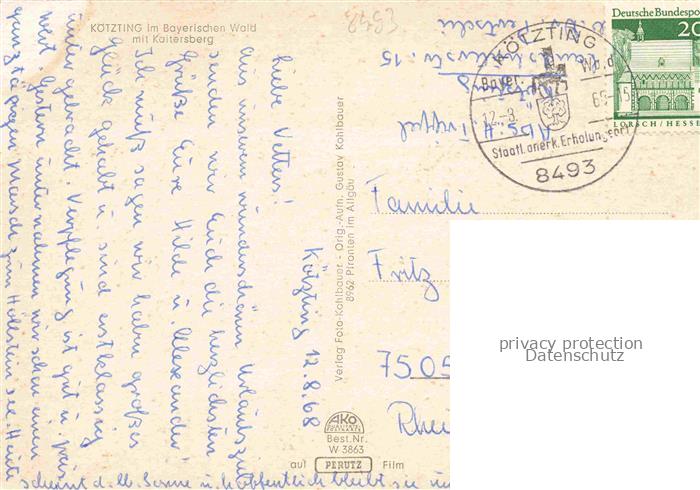 KÖTZTING im Bayerischen Wald
mit Kaitersberg
8493
Kötzting 12.8.68
Liebe Vetters!
Aus unserem wunderschönen Urlaubsziel
senden wir Euch die herzlichsten
Grüße Eure Hilde u. Alexander
Ich muß sagen wir haben großes
Glück gehabt u. sind erstklassig
unter gebracht. Verpflegung ist gut u. preis
wert. Gestern unternahmen wir schon einen
ganztägigen Marsch zum Höllstein see. Heute
scheint d. lb. Sonne u. hoffentlich bleibt sie
Verlag Foto-Kohlbauer - Orig.-Aufn. Gustav Kohlbauer
8962 Pfronten im Allgäu
AKO
Best.Nr.
W 3863
auf PERUTZ Film
Abs. A.
Kötzting
15
KÖTZTING
Bayer. Wald
12.-8. 68-15
Staatl. anerk. Erholungsort
8493
Deutsche Bundespost
20
LORSCH/HESSEN
Familie
Fritz
7505
Rhei
privacy protection
Datenschutz